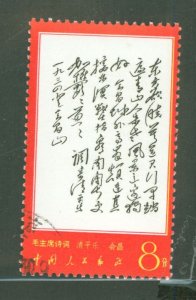 东方欲晓莫道君行早踏
遍青山人未老风景这边独
好会昌城外高峰颠连直
接东溟战士指看南粤更
郁郁葱葱 调寄清平乐
一九三四 会昌山
毛主席诗词 清平乐 会昌
中国人民邮政 8分